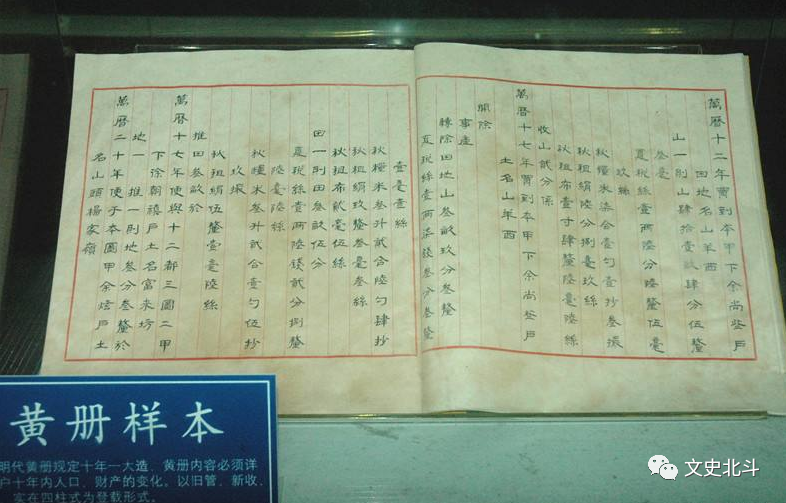 萬曆十二年買到本甲下余尚瑩戶
田地名山羊西
山一則山肆拾壹畝肆分伍釐
叁毫
夏稅絲壹兩陸分陸釐伍毫
玖絲
秋糧米柒合壹勺壹抄叁撮
秋租絹陸分捌毫玖絲
秋租布壹寸肆釐陸毫陸絲
收山貳分係
萬曆十七年買到本甲下余尚瑩戶
土名山羊西
開除
事產
轉除田地山叁畝玖分叁釐
夏稅絲壹兩柒錢叁分叁釐
壹毫壹絲
秋糧米叁升貳合陸勺肆抄
秋租絹玖釐叁毫叁絲
秋租布貳毫伍絲
田一則田叁畝伍分
夏稅絲壹兩陸錢貳分捌釐
陸毫陸絲
秋糧米叁升貳合壹勺伍抄
玖撮
秋租絹伍釐壹毫陸絲
推田叁畝於
萬曆十七年使與十二都三圖二甲
下徐朝禧戶土名富末坊
地一則地叁分叁釐於
萬曆二十年使于本圖甲余
戶土
名山頭楊家嶺
黄册样本
明代黄册规定十年一大造,黄册内容必须详
户十年内人口、财产的变化。以旧管、新收、
实在四柱式为登载形式。
文史北斗